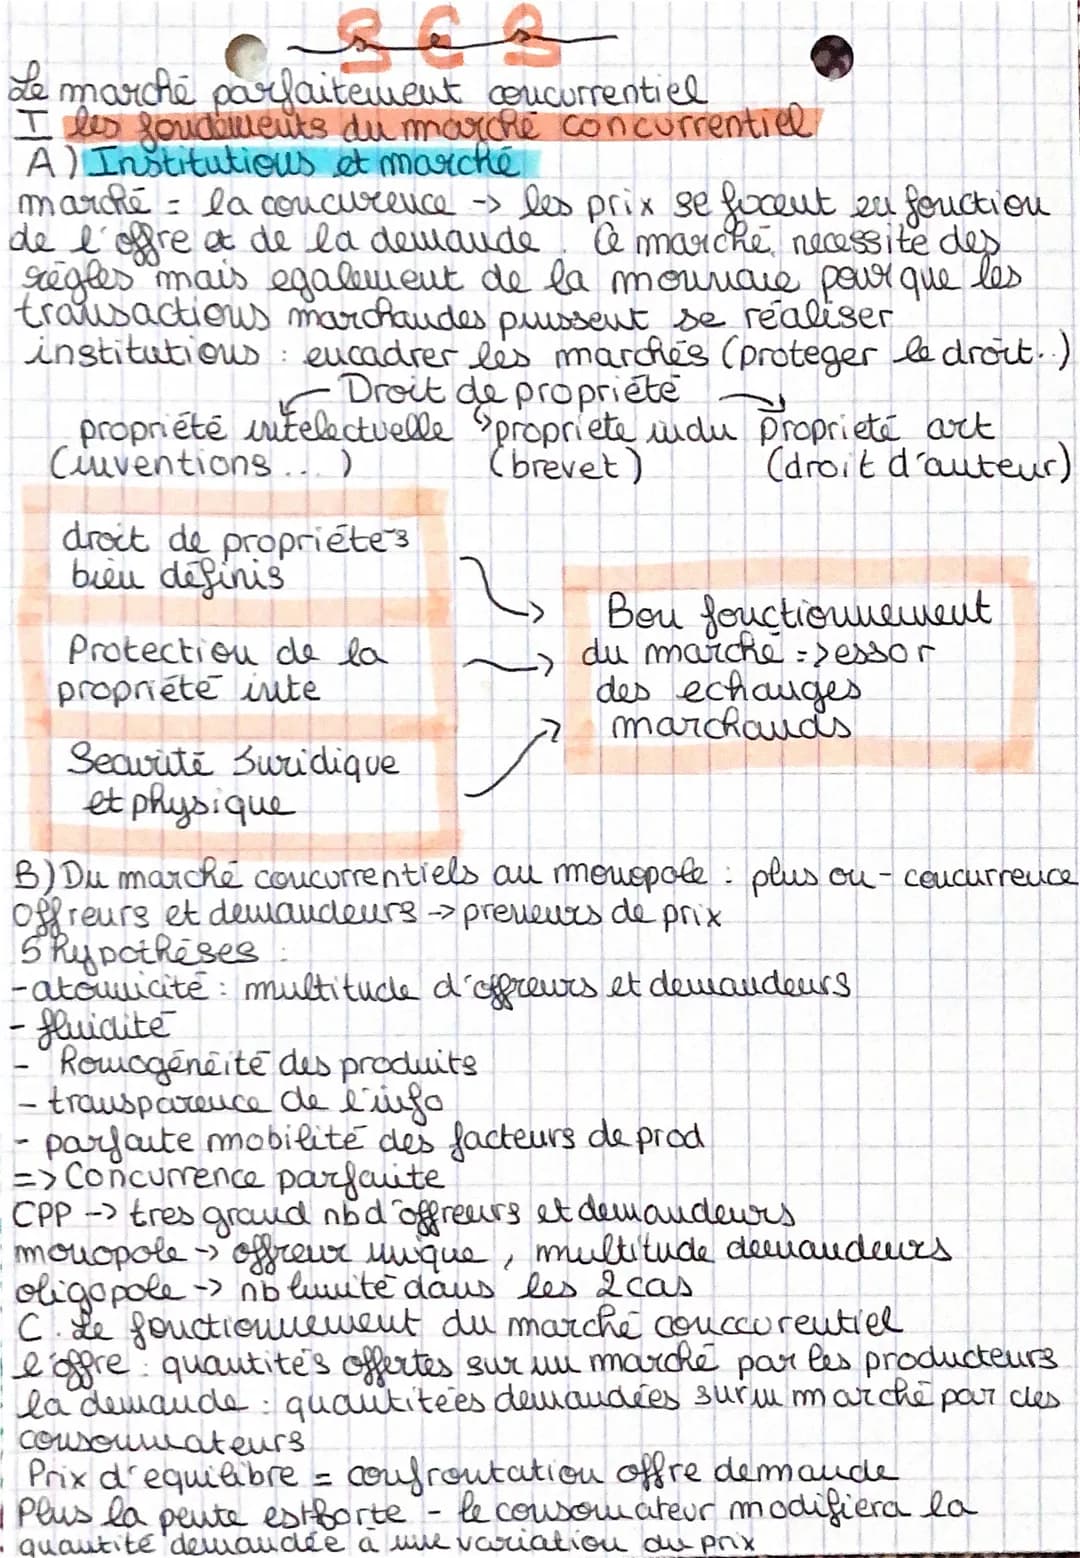 SES
Le marché parfaitement concurrentiel
I les fondements du marché concurrentiel
A) Institutions et marché
marché = la concurence -> les prix se fixent en fonction
de l'offre et de la demande. Ce marché necessite des
règles mais egalement de la monnaie pour que les
transactions marchandes puissent se réaliser
institutions : encadrer les marchés (proteger le droit..)
Droit de propriété
propriété intelectuelle propriete indu propriété art
(inventions...) (brevet) (droit d'auteur)
droit de propriétés
bien définis
Protection de la
propriété inte
Securité Juridique
et physique
Bon fonctionnement
du marché => essor
des echanges
marchands
B) Du marché concurrentiels au monopole : plus ou - concurrence
Offreurs et demandeurs -> preneurs de prix
5 hypothèses :
- atomicité : multitude d'offreurs et demandeurs
- fluidité
- Homogénéité des produits
- transparence de l'info
- parfaite mobilité des facteurs de prod
=> Concurrence parfaite
CPP -> tres grand nb d'offreurs et demandeurs
monopole -> offreur unique, multitude demandeurs
oligopole -> nb limité dans les 2 cas
C. Le fonctionnement du marché conccurentiel
l'offre : quantités offertes sur un marché par les producteurs
la demande : quantitées demandées sur un marché par des
consommateurs
Prix d'equilibre = confrontation offre demande
Plus la pente est forte - le consomateur modifiera la
quantité demandée à une variation du prix